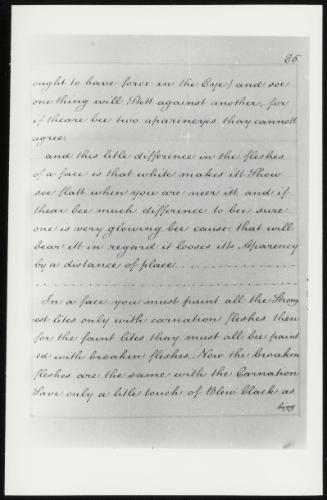 85.
ought to have force in the Eye) and soe
one thing will Sett against another, for
if theare bee two aparineyes thay cannott
agree.
and this litle difference in the fleshes
of a face is that white makes itt Show
soe flatt when you are neer itt, and if
thear bee much difference to bee sure
one is very glowing bee cause that will
bear itt in regard it looses itts Aparency
by a distance of place
In a face you must paint all the Strong
est lites only with carnation fleshes then
for the faint lites thay must all bee paint
ed with broaken fleshes. Now the broaken
fleshes are the same with the Carnation
Save only a litle touch of Blew black as